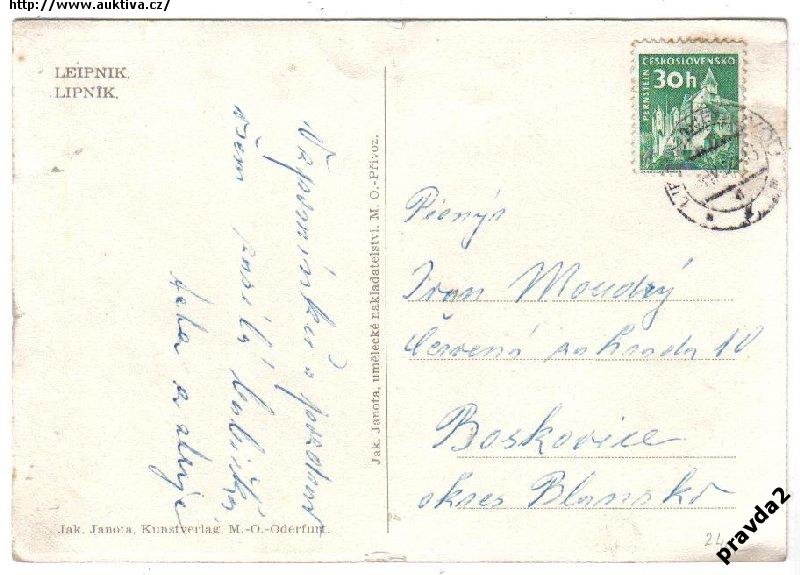 http://www.auktiva.cz/
LEIPNIK.
LIPNÍK.
ČESKOSLOVENSKO
30h
PERNŠTEJN
Vzpomínku a pozdrav
všem posílá babička
teta a strýc
Jak. Janota, umělecké nakladatelství, M. O.-Přívoz.
Ivan Moudrý
Červená zahrada 10
Boskovice
okres Blansko
Jak. Janota, Kunstverlag, M.-O.-Oderfurt.
24
pravda2